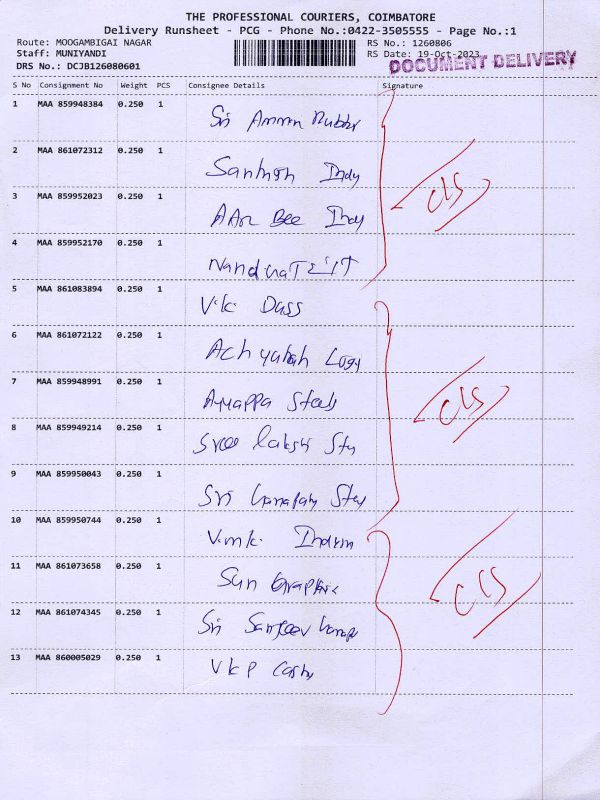 THE PROFESSIONAL COURIERS, COIMBATORE
Delivery Runsheet - PCG - Phone No.:0422-3505555 - Page No.:1
Route: MOOGAMBIGAI NAGAR RS No.: 1260806
Staff: MUNIYANDI RS Date: 19-Oct-2023
DRS No.: DCJB126080601
DOCUMENT DELIVERY
S No Consignment No Weight PCS Consignee Details Signature
1 MAA 859948384 0.250 1
Sri Amman Rubber
2 MAA 861072312 0.250 1
Santhosh Indy
CLS
3 MAA 859952023 0.250 1
AAR Bee Indy
4 MAA 859952170 0.250 1
5 MAA 861083894 0.250 1
V.K. Dass
6 MAA 861072122 0.250 1
7 MAA 859948991 0.250 1
Ayyappa Steels
CLS
8 MAA 859949214 0.250 1
Sree
9 MAA 859950043 0.250 1
Sri
10 MAA 859950744 0.250 1
V.M.K.
11 MAA 861073658 0.250 1
Sun Graphic
CLS
12 MAA 861074345 0.250 1
Sri Sanjeev
13 MAA 860005029 0.250 1
VKP